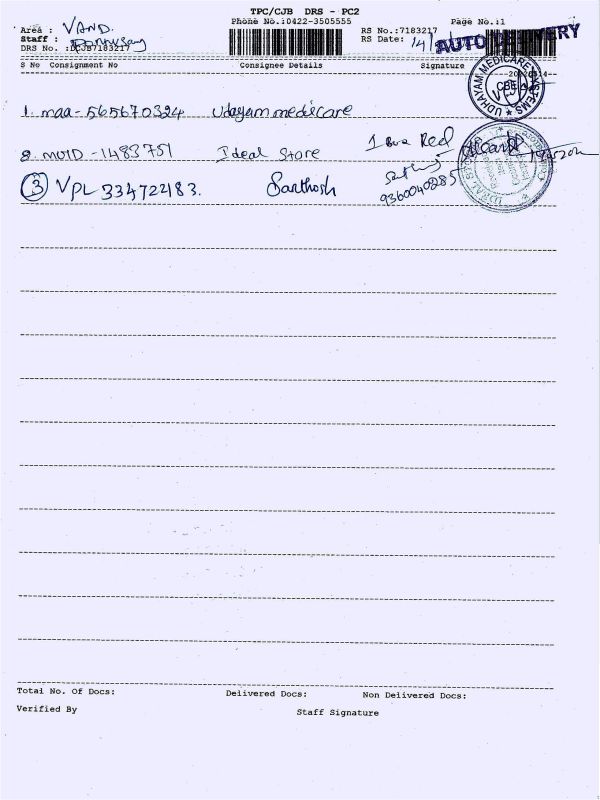 TPC/CJB DRS - PC2
Phone No.:0422-3505555 Page No.:1
Area : VAND.
RS No.:7183217
Staff : Ponnusamy
RS Date: 14/
AUTO DELIVERY
DRS No. :DCJB7183217
S No Consignment No Consignee Details Signature
UDHAYAM MEDICARE SYSTEMS
CBE
1. maa - 565670324 Udayam medicare
2. MUID - 1483751 Ideal Store
1 Box Recd
③ VPL 33472483. Santhosh
9360040285
Total No. Of Docs: Delivered Docs: Non Delivered Docs:
Verified By Staff Signature